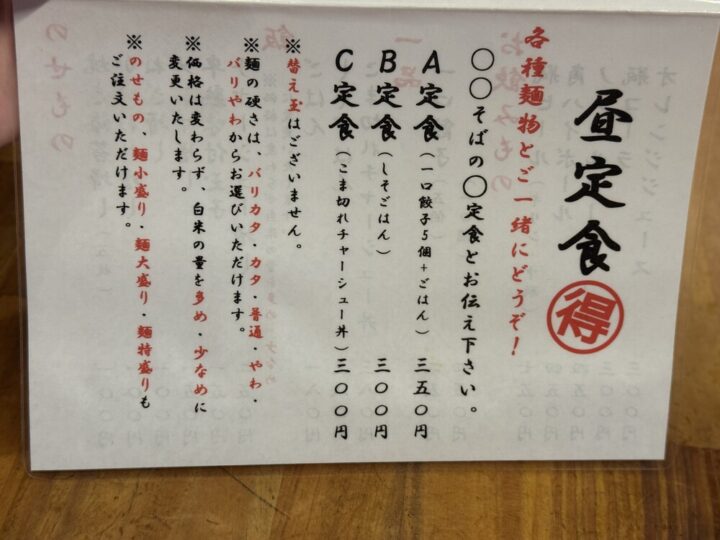 昼定食 得
各種麺物とご一緒にどうぞ！
〇〇そばの〇定食とお伝え下さい。
A定食（一口餃子5個+ごはん）三五〇円
B定食（しそごはん）三〇〇円
C定食（こま切れチャーシュー丼）三〇〇円
※替え玉はございません。
※麺の硬さは、バリカタ・カタ・普通・やわ・
バリやわからお選びいただけます。
※価格は変わらず、白米の量を多め・少なめに
変更いたします。
※のせもの、麺小盛り・麺大盛り・麺特盛りも
ご注文いただけます。
お飲みもの
一品
飯
のせもの
オレンジジュース